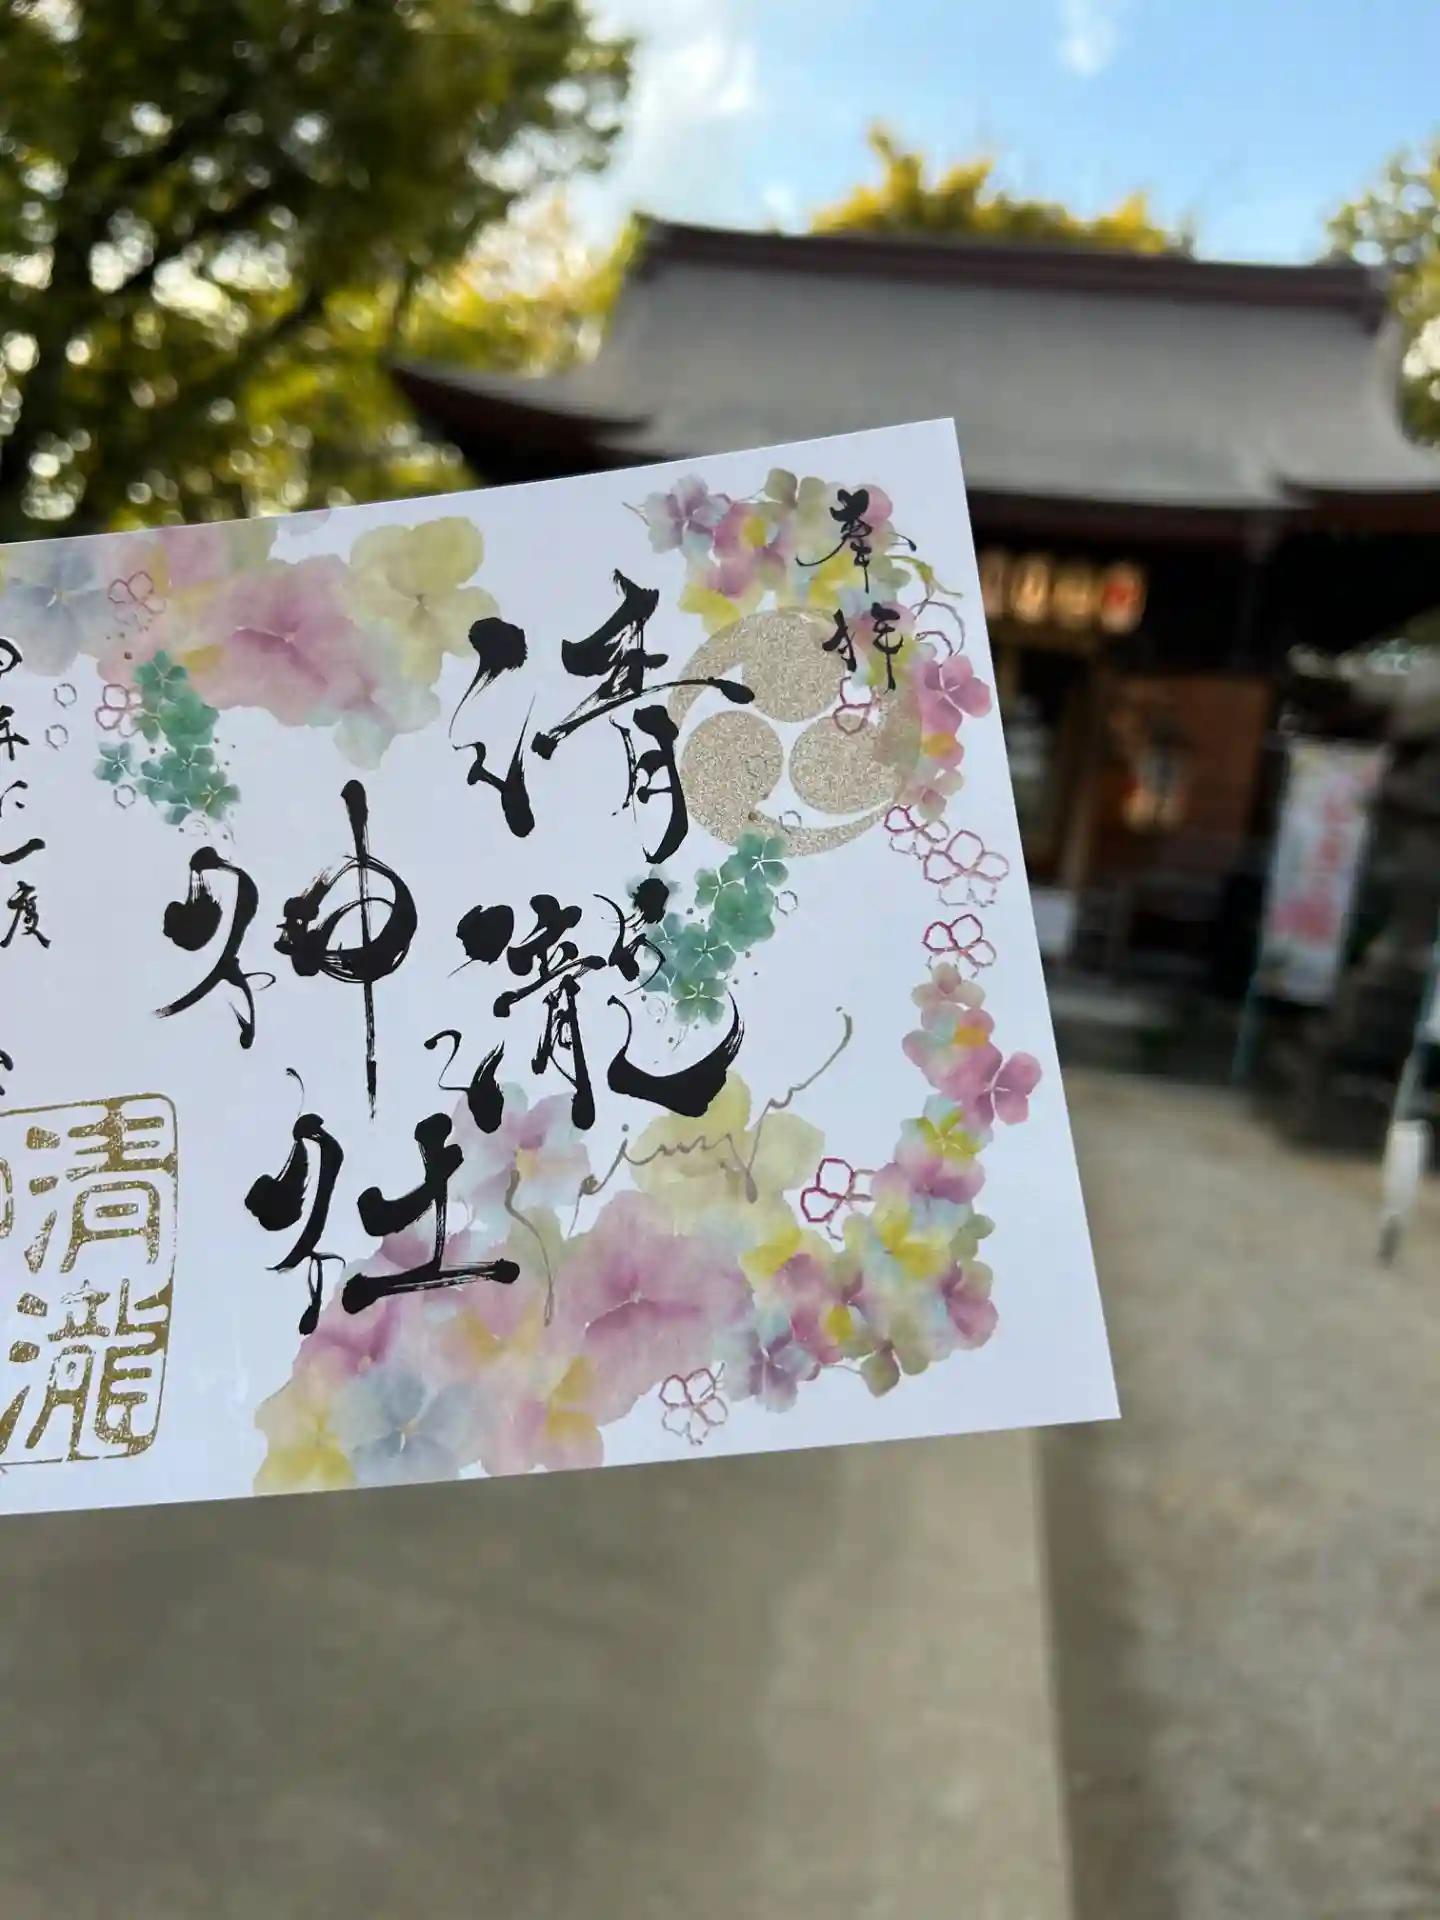 奉拝
清瀧
神社
spring
年に一度
清瀧